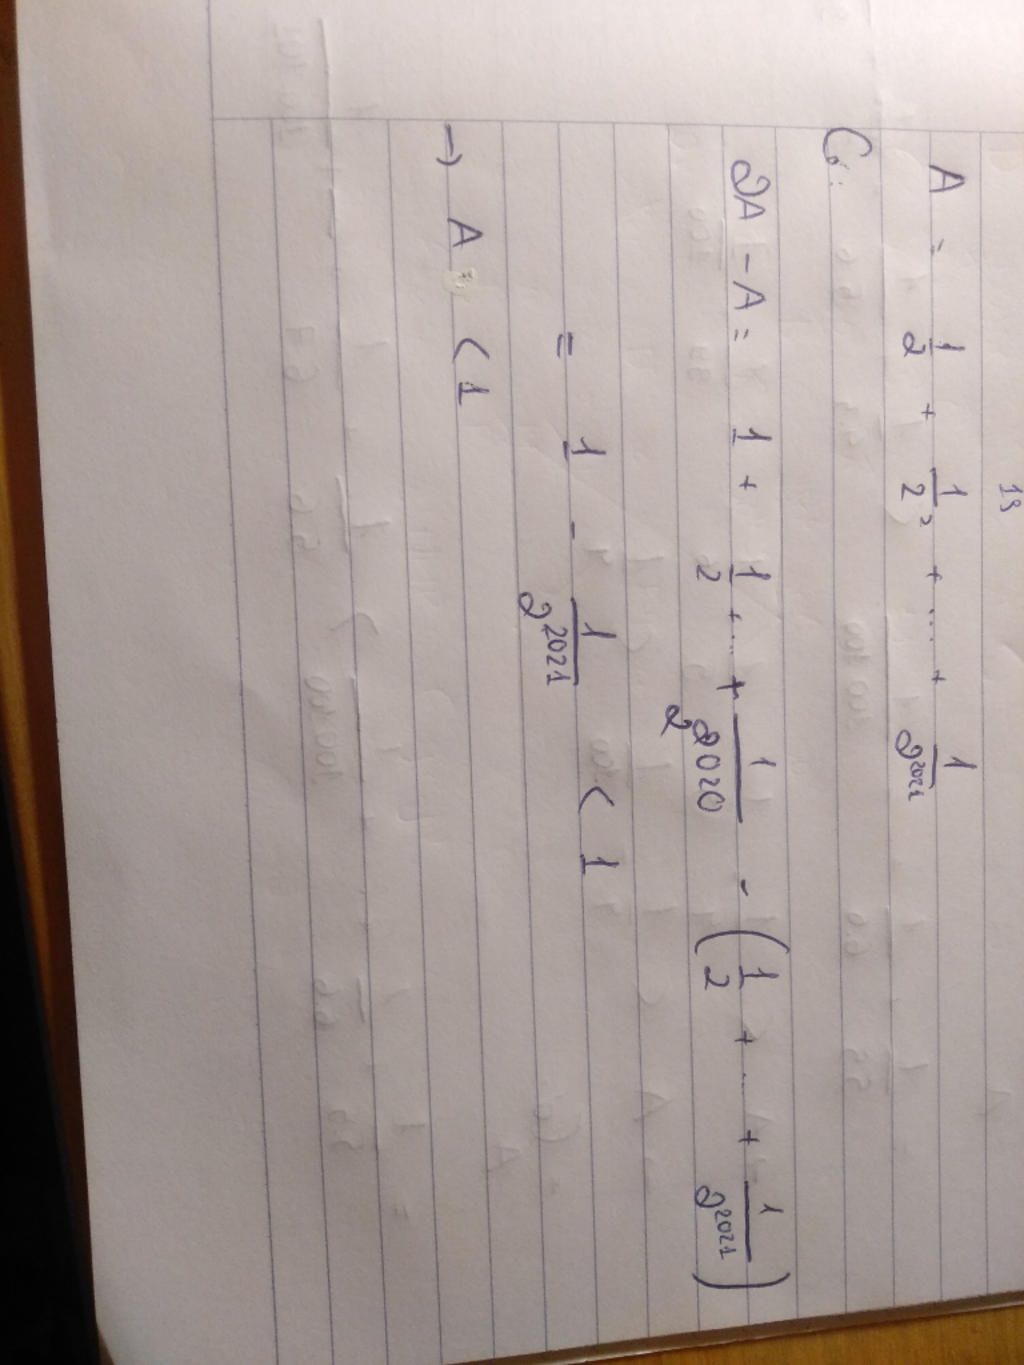 13
A = 1/2 + 1/2² + .... + 1/2²⁰²¹
Có:
2A - A = 1 + 1/2 + ... + 1/2²⁰²⁰ - (1/2 + ... + 1/2²⁰²¹)
= 1 - 1/2²⁰²¹ < 1
→ A < 1